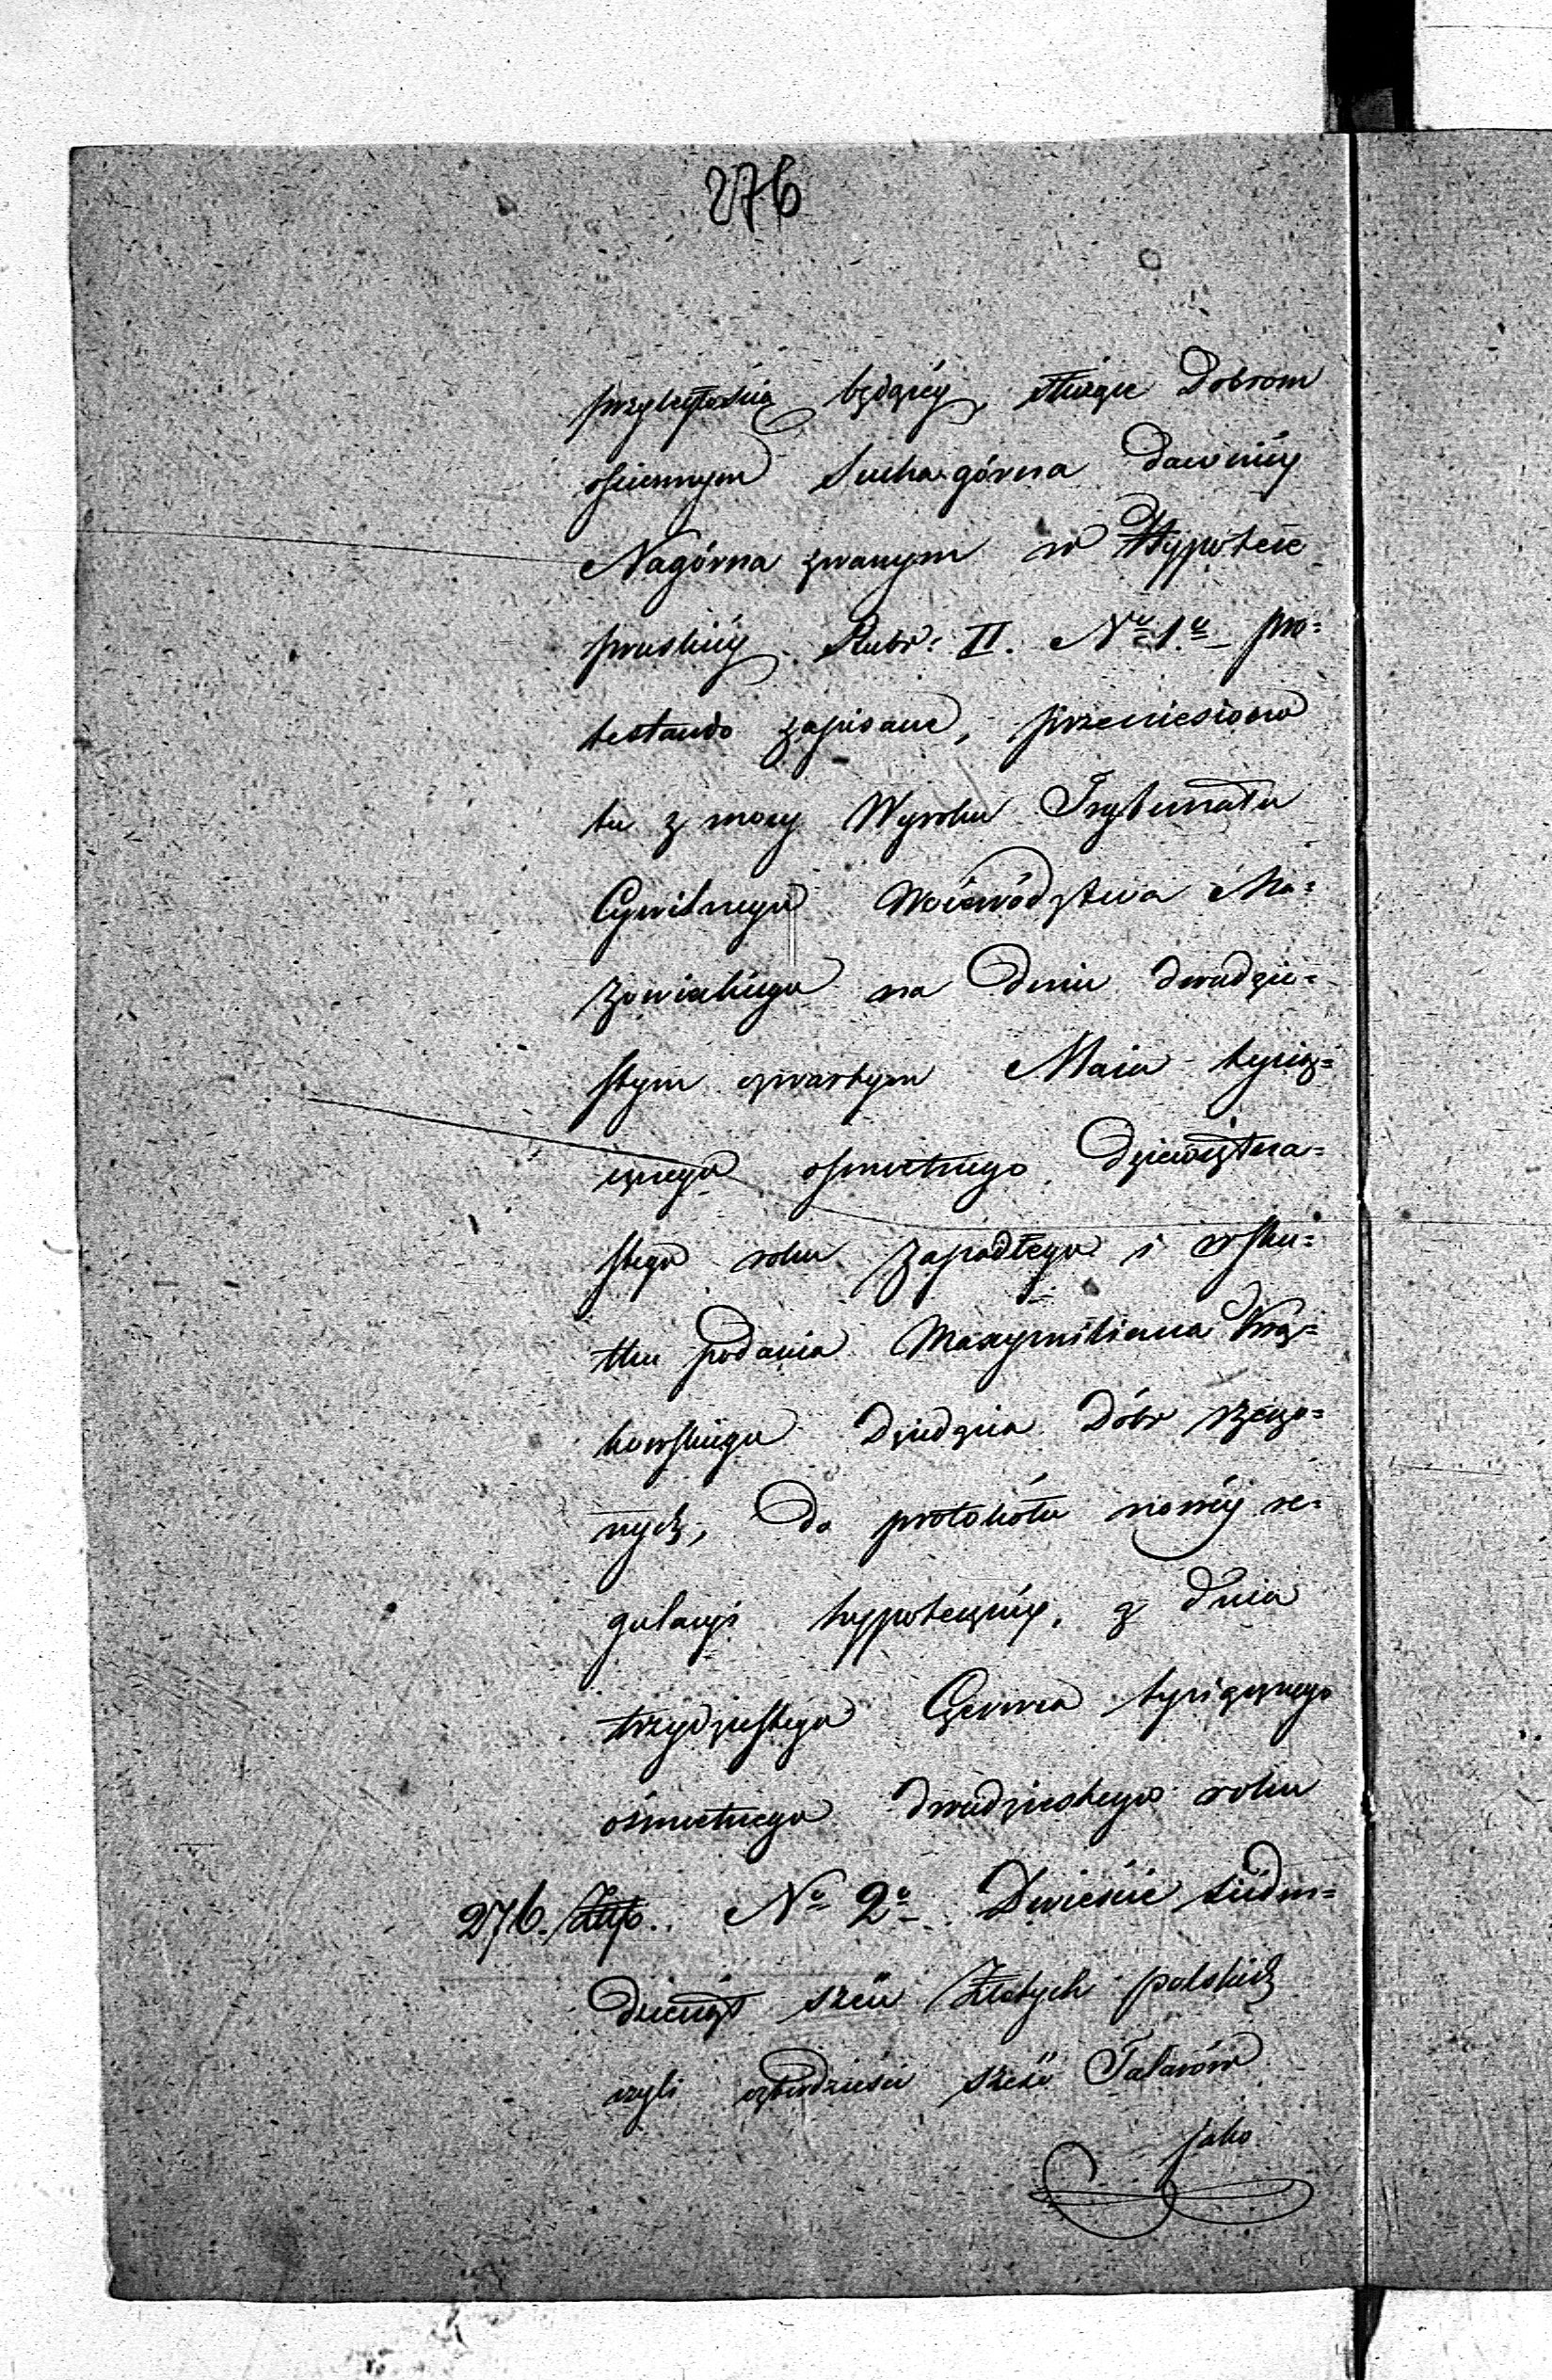 276
przyległością będącéy, służące Dobrom
ościennym Sucha górna dawniéy
Nagórna zwanym w Hÿpotece
pruskiéy Rubr: II. No 1o pro=
testando zapisane, przeniesiono
tu z mocy Wyroku Trybunału
Cywilnego Woiewództwa Ma=
zowieckiego na dniu dwudzie=
stym czwartym Maia tysią=
cznego osmsetnego dziewiętna=
stego roku zapadłego i w sku=
tku podania Maxymiliana
kowskiego Dziedzica Dóbr rzeczo=
nych, do protokółu nowéy re=
gulacyi hyppotecznéy, z dnia
trzydziestego Czerwca tysiącznego
ośmsetnego dwudziestego roku
276. Złłp. No 2o Dwieście siedm=
dziesiąt sześć Złotych polskich
czyli czterdzieści sześć Talarów
jako